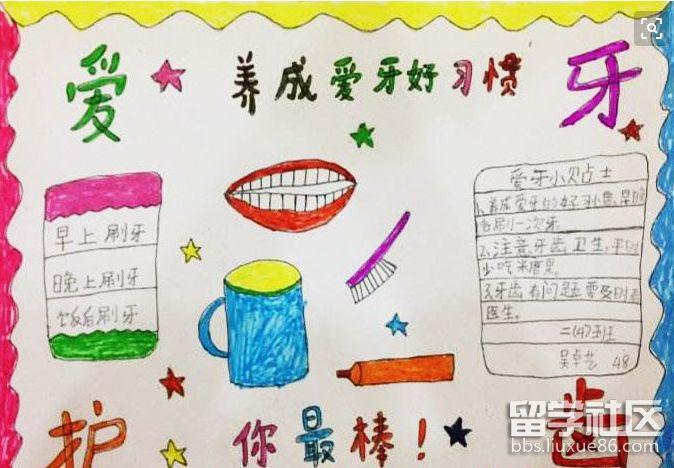 爱
养成爱牙好习惯
牙
早上刷牙
晚上刷牙
饭后刷牙
爱牙小贴士
1.养成爱牙的好习惯,早晚
各刷一次牙
2.注意牙齿卫生,平时
少吃米唐果。
3.牙齿有问题要及时
医生。
二(4)班
吴卓艺 48
护
你最棒!
齿
留学社区
bbs.liuxue86.com